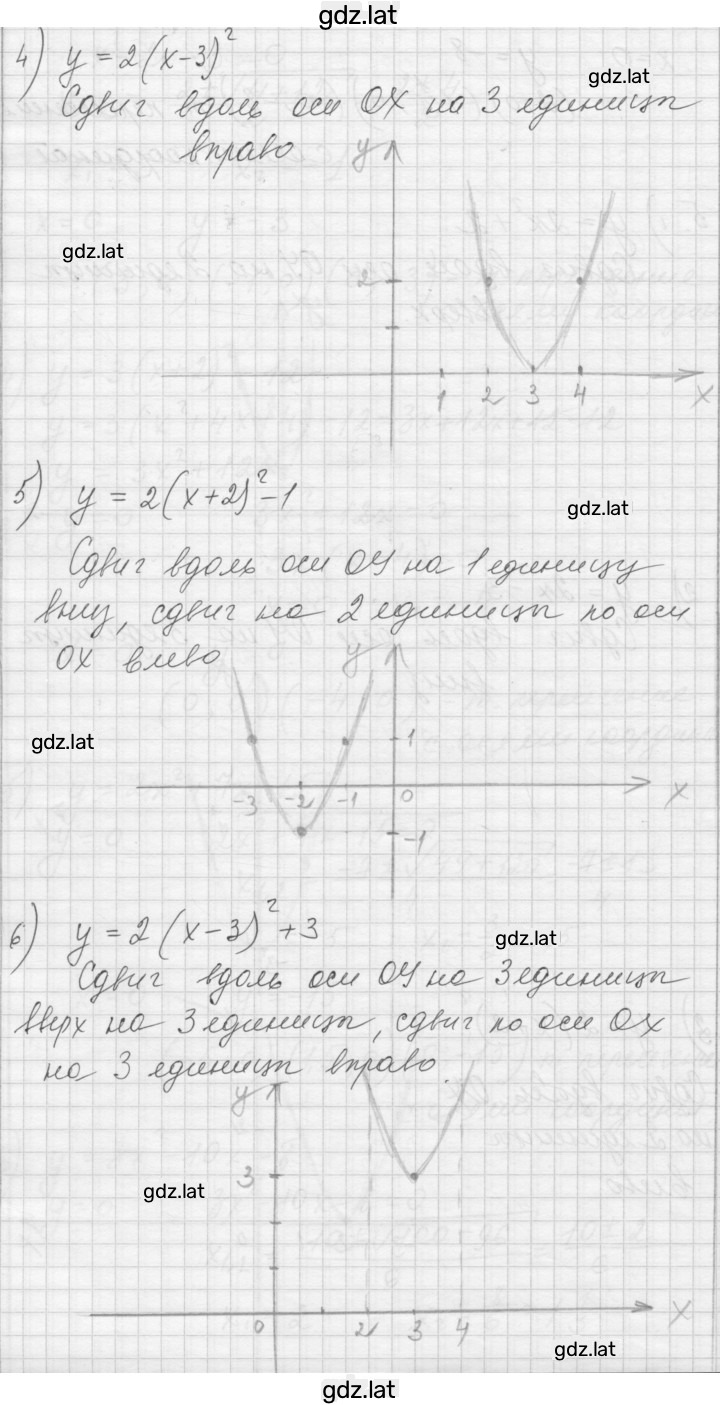 gdz.lat
4) y = 2(x-3)²
gdz.lat
Сдвиг вдоль оси OX на 3 единицы
вправо
y
gdz.lat
2
1 2 3 4
x
5) y = 2(x+2)²-1
gdz.lat
Сдвиг вдоль оси OY на 1 единицу
вниз, сдвиг на 2 единицы по оси
OX влево
y
gdz.lat
1
-3 -2 -1 0
x
-1
6) y = 2(x-3)²+3
gdz.lat
Сдвиг вдоль оси OY на 3 единицы
вверх на 3 единицы, сдвиг по оси OX
на 3 единицы вправо
y
3
gdz.lat
0 2 3 4
x
gdz.lat
gdz.lat